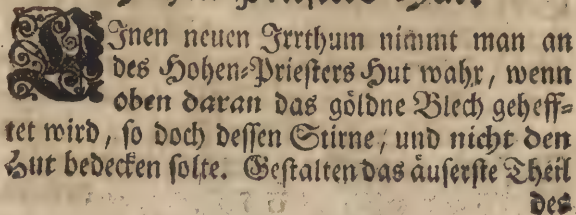 EInen neuen Irrthum nimmt man an
des Hohen-Priesters Hut wahr, wenn
oben daran das göldne Blech geheff-
tet wird, so doch dessen Stirne, und nicht den
Hut bedecken solte. Gestalten das äuserste Theil
des